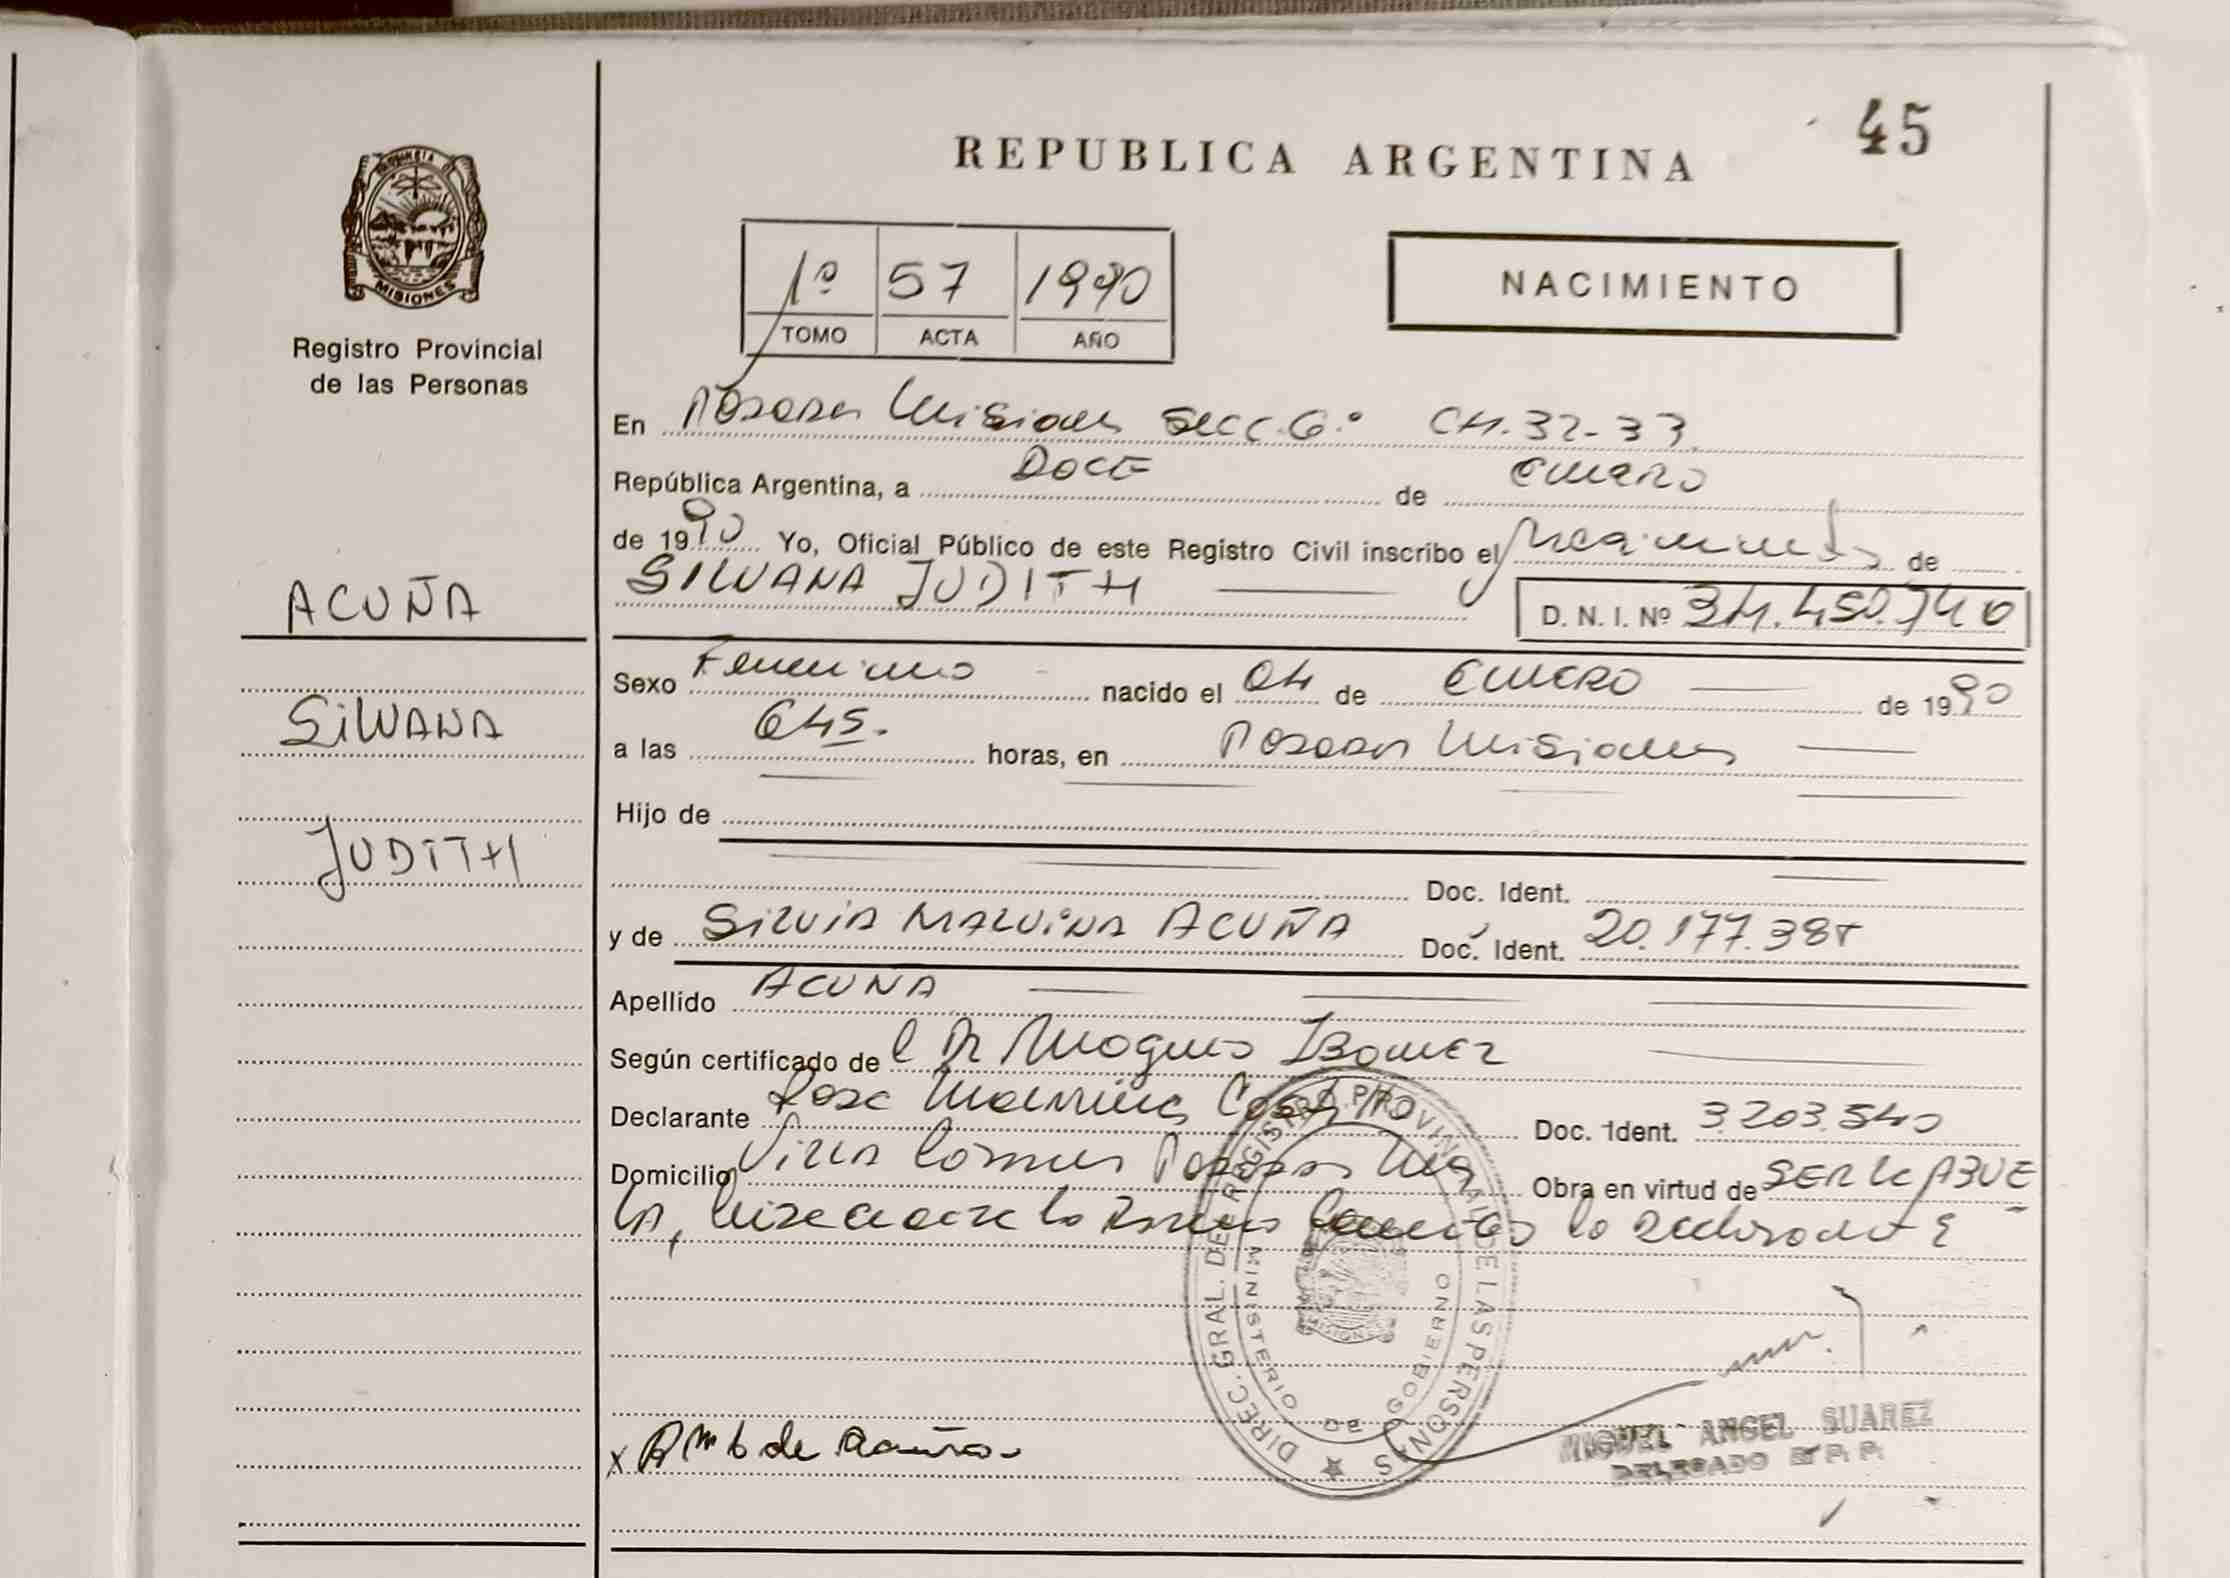 45
REPUBLICA ARGENTINA
PROVINCIA
MISIONES
Registro Provincial
de las Personas
1º 57 1990
TOMO ACTA AÑO
NACIMIENTO
En Posadas Misiones Secc. 6º CH. 32-33
República Argentina, a DOCE de Enero
de 1990 Yo, Oficial Público de este Registro Civil inscribo el Nacimiento de
SILVANA JUDITH
D. N. I. Nº 34.450.740
ACUÑA
SILVANA
JUDITH
Sexo Femenino nacido el 04 de ENERO de 1990
a las 6hs. horas, en Posadas Misiones
Hijo de
Doc. Ident.
y de SILVIA MALVINA ACUÑA Doc. Ident. 20.177.38
Apellido ACUÑA
Según certificado de l Dr
Declarante Rosa Doc. Ident. 3.203.540
Domicilio Villa Posadas Obra en virtud de SER LA ABUE
LA, la declarante
de Acuña
DIREC. GRAL. DE REGISTRO PROVINCIAL DE LAS PERSONAS
MINISTERIO DE GOBIERNO
MISIONES
MIGUEL ANGEL SUAREZ
DELEGADO R. P. P.